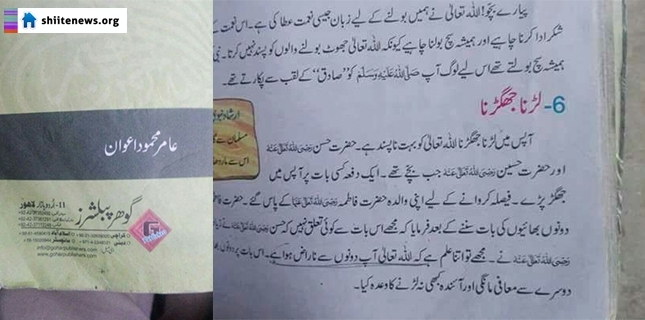 shiitenews.org
عامر محمود اعوان
گوھر پبلشرز
11-اُردو بازار لاہور
پیارے بچو! اللہ تعالیٰ نے ہمیں بولنے کے لیے زبان جیسی نعمت عطا کی ہے۔ اس نعمت کے
شکر ادا کرنا چاہیے اور ہمیشہ سچ بولنا چاہیے کیونکہ اللہ تعالیٰ جھوٹ بولنے والوں کو پسند نہیں کرتا۔ نبی
ہمیشہ سچ بولتے تھے اس لیے لوگ آپ صَلَّی اللہُ عَلَیْہِ وَسَلَّمَ کو "صادق" کے لقب سے پکارتے تھے۔
6- لڑنا جھگڑنا
ارشاد نبوی
مسلمان سے
آپس میں لڑنا جھگڑنا اللہ تعالیٰ کو بہت ناپسند ہے۔ حضرت حسن رَضِیَ اللہُ تَعَالیٰ عَنْہُ
اور حضرت حسین رَضِیَ اللہُ تَعَالیٰ عَنْہُ جب بچے تھے۔ ایک دفعہ کسی بات پر آپس میں
جھگڑ پڑے۔ فیصلہ کروانے کے لیے اپنی والدہ حضرت فاطمہ رَضِیَ اللہُ تَعَالیٰ عَنْہَا کے پاس گئے۔ حضرت
دونوں بھائیوں کی بات سننے کے بعد فرمایا کہ مجھے اس بات سے کوئی تعلق نہیں کہ حسن
رَضِیَ اللہُ تَعَالیٰ عَنْہُ نے۔ مجھے تو اتنا علم ہے کہ اللہ تعالیٰ آپ دونوں سے ناراض ہوا ہے۔ اس بات پر دونوں
دوسرے سے معافی مانگی اور آئندہ کبھی نہ لڑنے کا وعدہ کیا۔